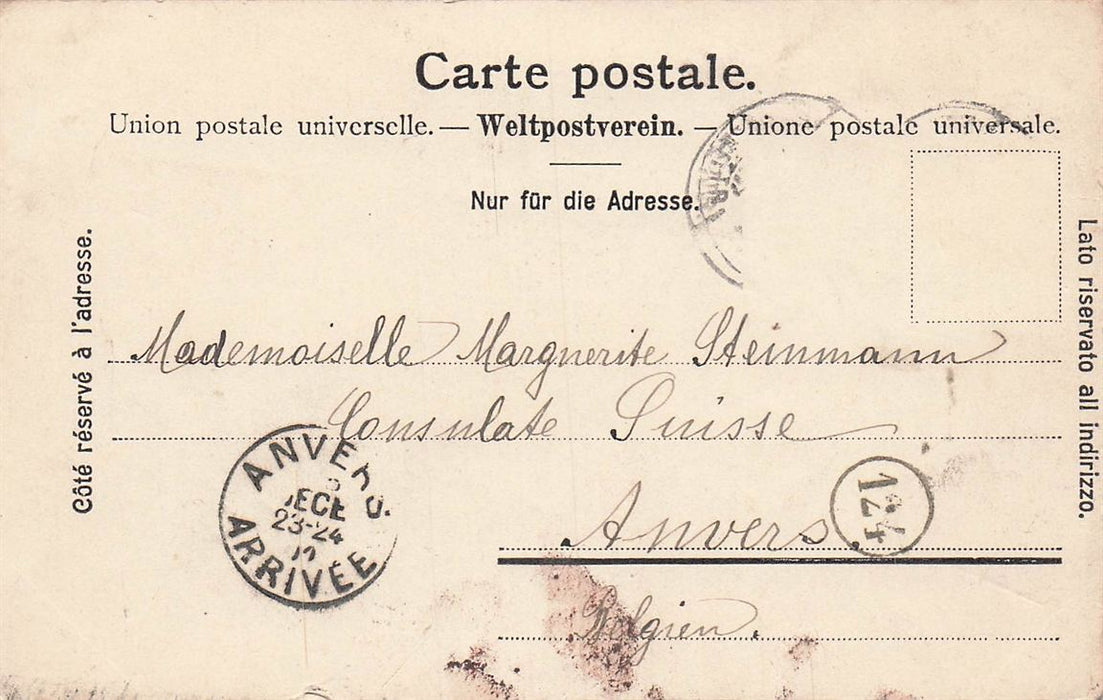 Carte postale.
Union postale universelle. — Weltpostverein. — Unione postale universale.
Nur für die Adresse.
Côté réservé à l'adresse.
Lato riservato all indirizzo.
Mademoiselle Marguerite Steinmann
Consulate Suisse
Anvers.
Belgien.
ANVERS
DECE
23-24
ARRIVÉE
124